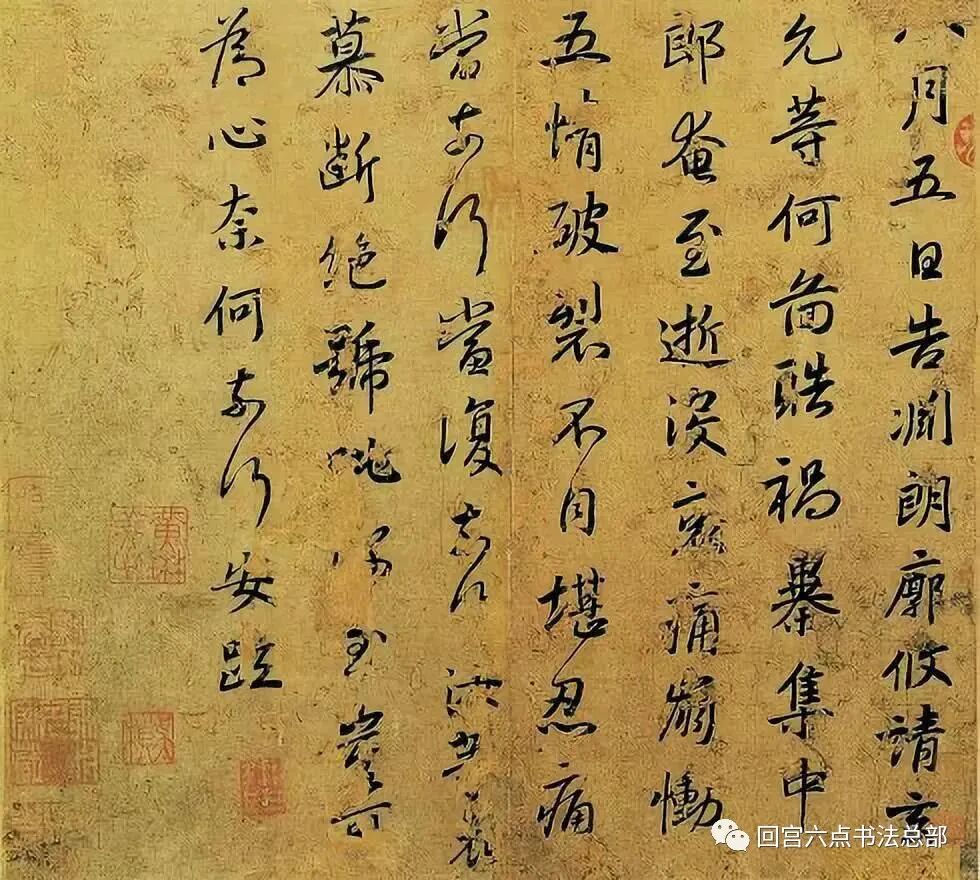 八月五日告淵朗廓攸靖玄
允等何圖酷禍暴集中
郎奄至逝沒哀痛崩慟
五情破裂不自堪忍痛
當奈何當復奈何汝等哀
慕斷絕號咷深至豈可
為心奈何奈何安疏
回宫六点书法总部